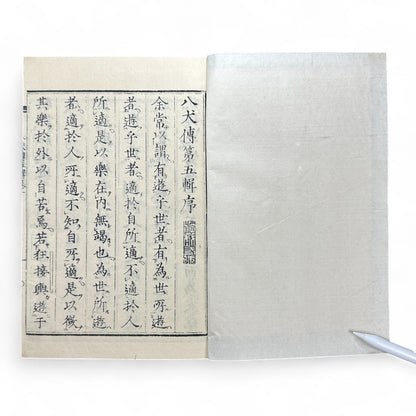 八犬傳第五輯序
余常以謂有遊乎世者有為世所遊
者遊乎世者適於自所適不適於人
所適是以樂在內無竭也為世所遊
者適於人所適不知自所適是以徵
其樂於外以自苦焉若狂接輿遊于